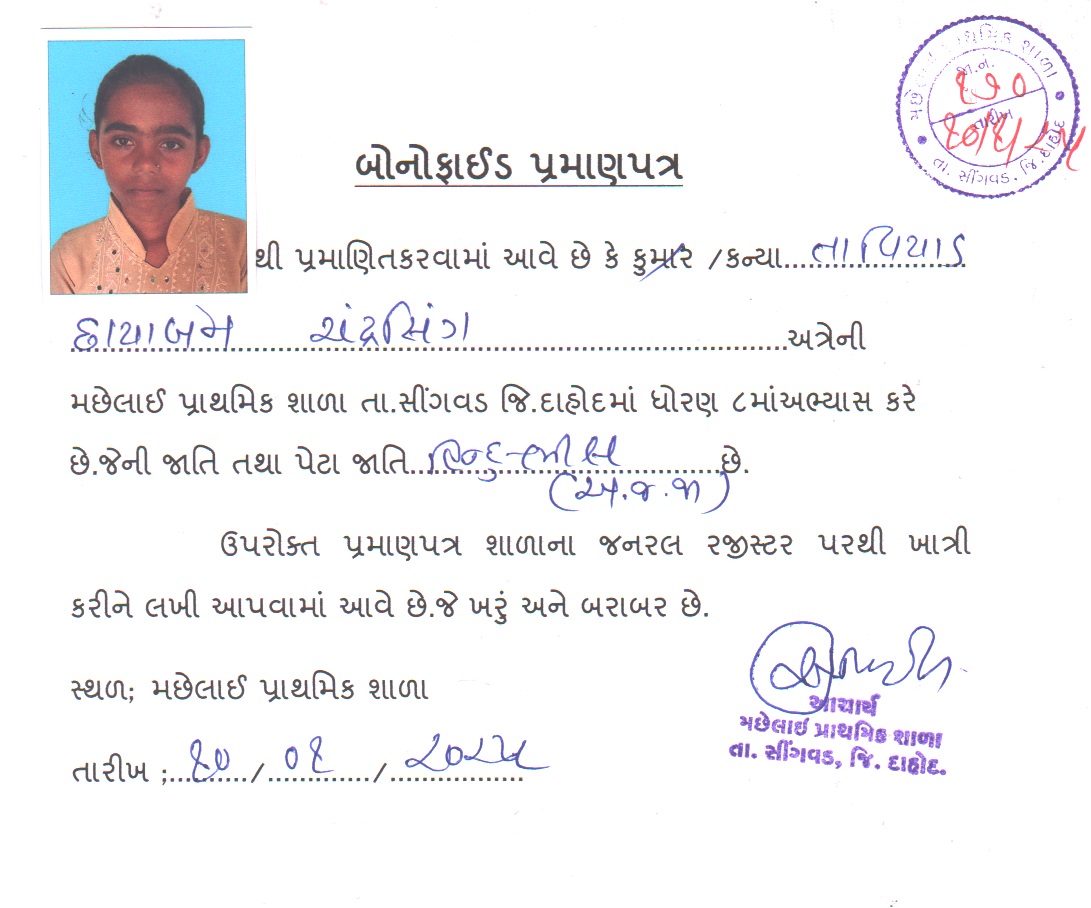 મછેલાઈ પ્રાથમિક શાળા
જા.નં.
૧૭૦
તારીખ
તા. સીંગવડ. જિ. દાહોદ
બોનોફાઈડ પ્રમાણપત્ર
થી પ્રમાણિતકરવામાં આવે છે કે કુમાર /કન્યા...તાવિયાડ
છાયાબેન ચંદ્રસિંગ...અત્રેની
મછેલાઈ પ્રાથમિક શાળા તા.સીંગવડ જિ.દાહોદમાં ધોરણ ૮માંઅભ્યાસ કરે
છે.જેની જાતિ તથા પેટા જાતિ...હિન્દુ-ભીલ...છે.
(અ.જ.જા)
ઉપરોક્ત પ્રમાણપત્ર શાળાના જનરલ રજીસ્ટર પરથી ખાત્રી
કરીને લખી આપવામાં આવે છે.જે ખરું અને બરાબર છે.
સ્થળ; મછેલાઈ પ્રાથમિક શાળા
આચાર્ય
મછેલાઈ પ્રાથમિક શાળા
તા. સીંગવડ, જિ. દાહોદ.
તારીખ ;...૧૦.../...૦૧.../...૨૦૨૫